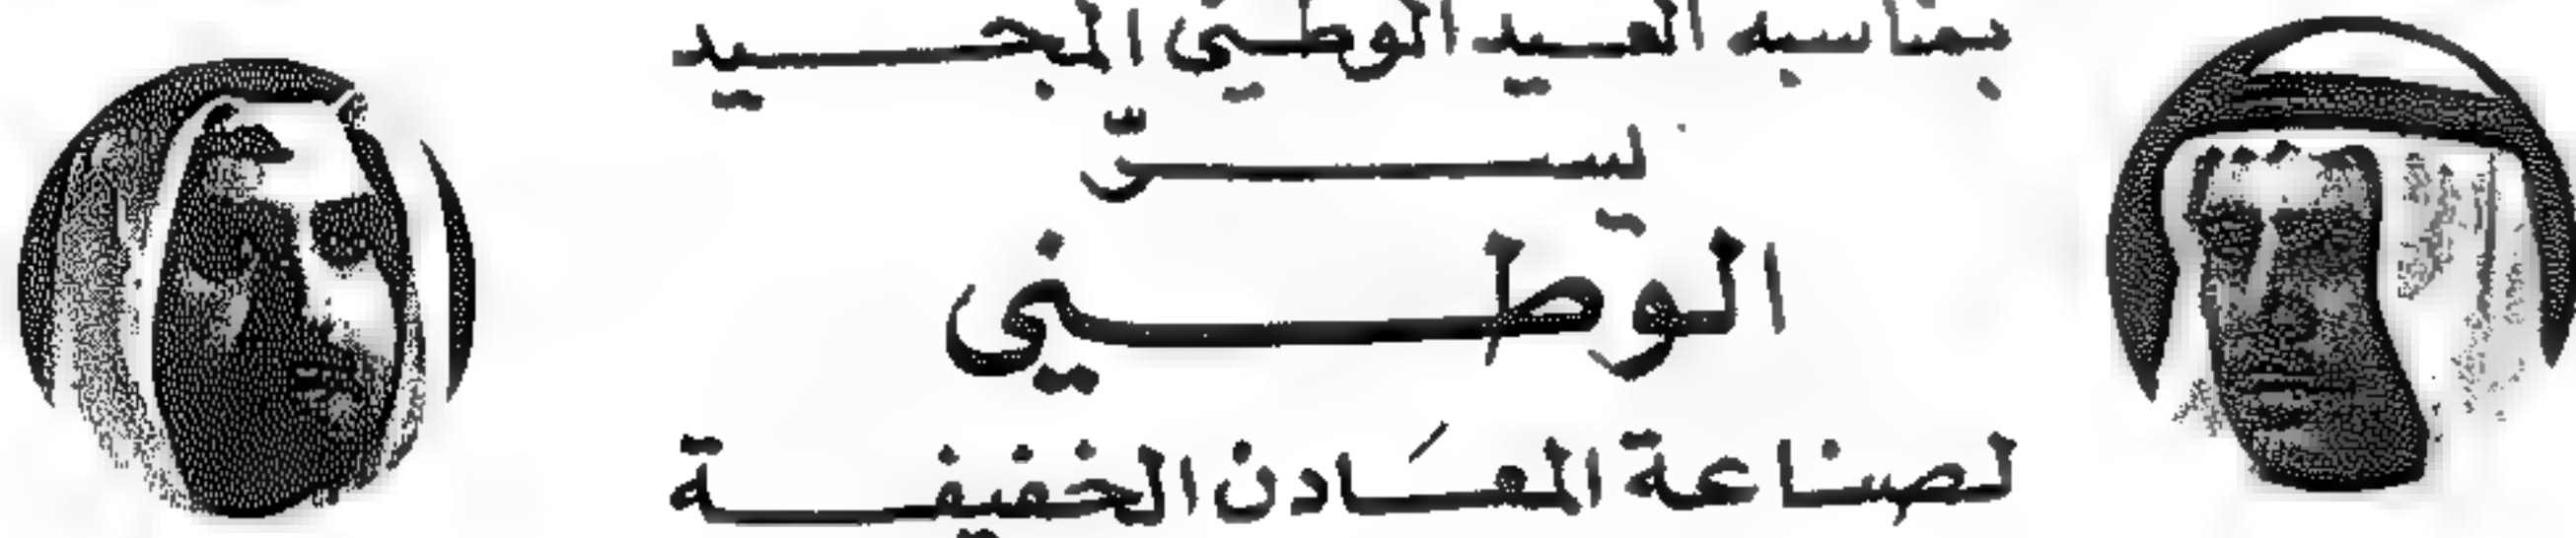 بمناسبة العيد الوطني المجيد
يسرّ
الوطني
لصناعة المعَادن الخفيفة